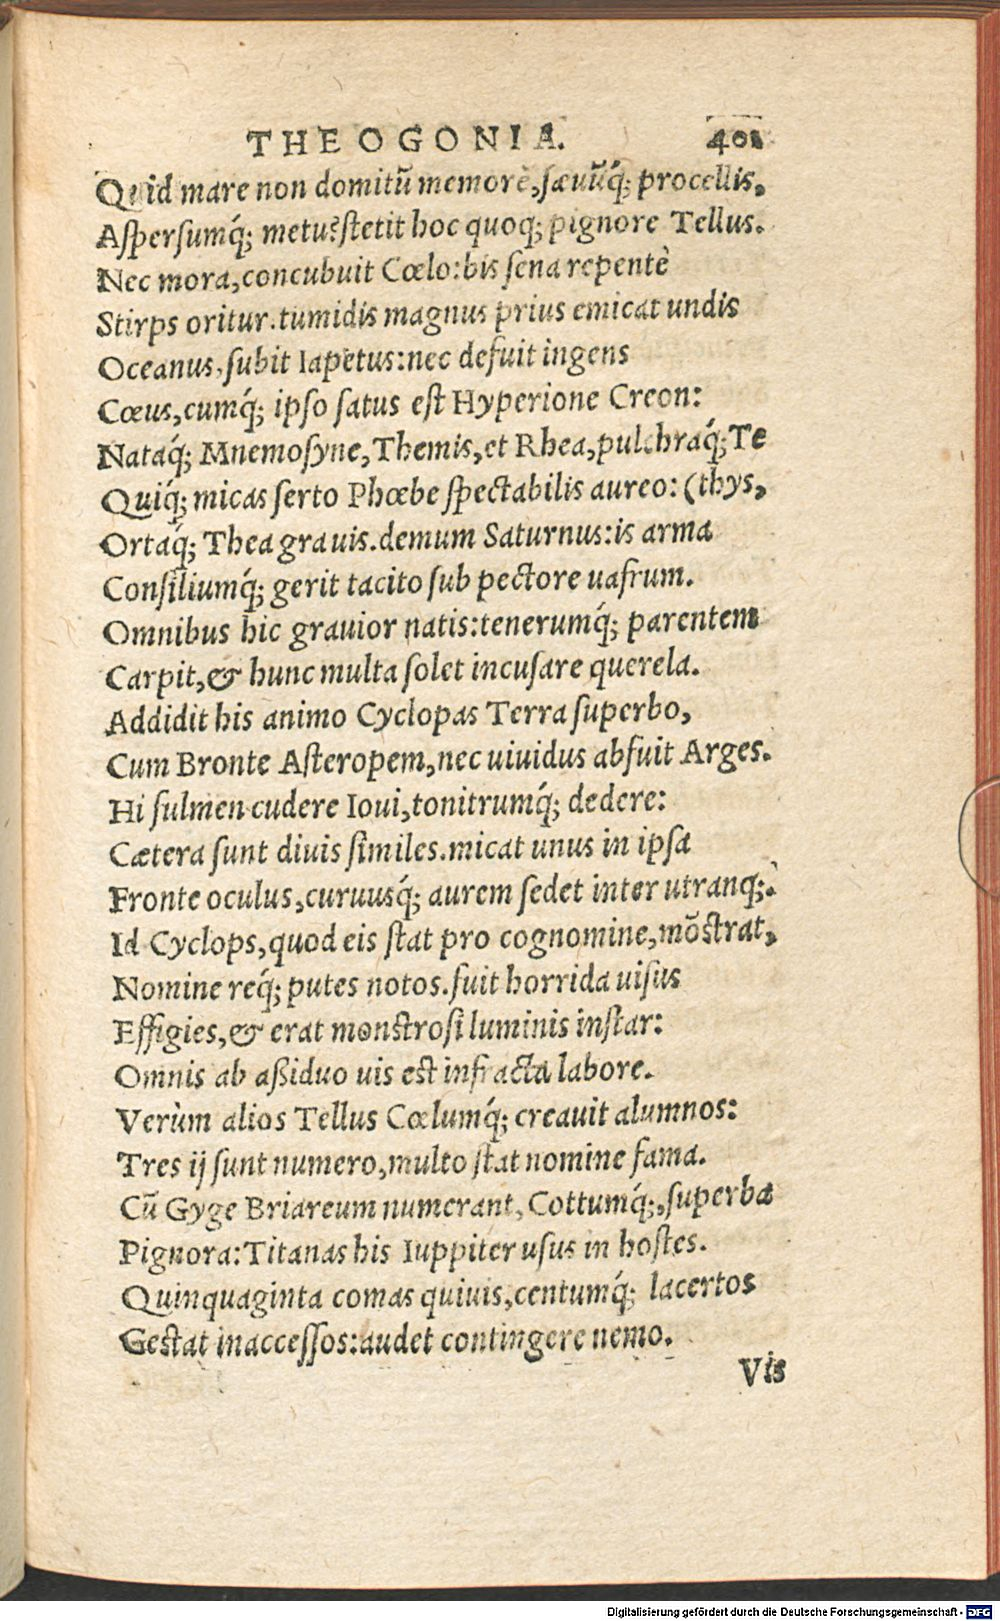 THEOGONIA. 401
Quid mare non domitũ memorē, sæuũq́; procellis,
Aspersumq́; metu? stetit hoc quoq; pignore Tellus.
Nec mora, concubuit Cœlo: bis sena repentè
Stirps oritur. tumidis magnus prius emicat undis
Oceanus, subit Iapetus: nec defuit ingens
Cœus, cumq́; ipso satus est Hyperione Creon:
Nataq́; Mnemosyne, Themis, et Rhea, pulchraq́; Te
Quiq́; micas serto Phœbe spectabilis aureo: (thys,
Ortaq́; Thea grauis. demum Saturnus: is arma
Consiliumq́; gerit tacito sub pectore uafrum.
Omnibus hic grauior natis: tenerumq́; parentem
Carpit, & hunc multa solet incusare querela.
Addidit his animo Cyclopas Terra superbo,
Cum Bronte Asteropem, nec uiuidus abfuit Arges.
Hi fulmen cudere Ioui, tonitrumq́; dedere:
Cætera sunt diuis similes. micat unus in ipsa
Fronte oculus, curuusq́; aurem sedet inter utranq;.
Id Cyclops, quod eis stat pro cognomine, mõstrat,
Nomine req́; putes notos. fuit horrida uisus
Effigies, & erat monstrosi luminis instar:
Omnis ab aßiduo uis est infracta labore.
Verùm alios Tellus Cœlumq́; creauit alumnos:
Tres ij sunt numero, multo stat nomine fama.
Cũ Gyge Briareum numerant, Cottumq́;, superba
Pignora: Titanas his Iuppiter usus in hostes.
Quinquaginta comas quiuis, centumq́; lacertos
Gestat inaccessos: audet contingere nemo.
Vis
Digitalisierung gefördert durch die Deutsche Forschungsgemeinschaft - DFG